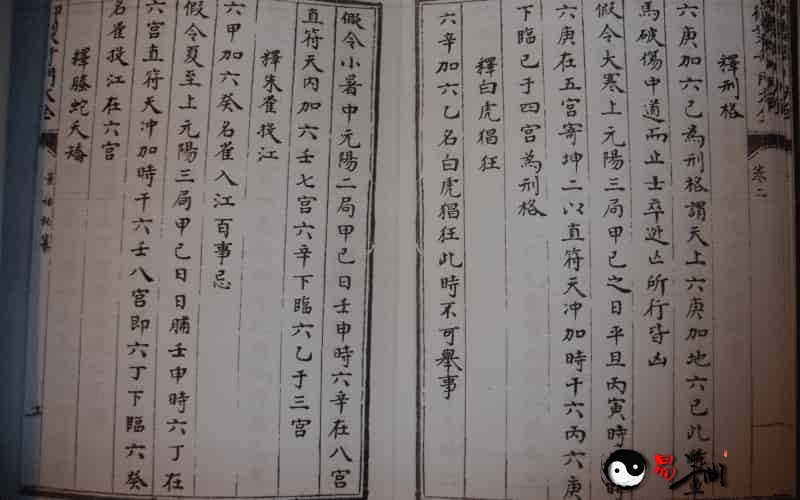 卷二
釋刑格
六庚加六己為刑格謂天上六庚加地六己此
馬破傷中道而止士卒逃亡所行皆凶
假令大寒上元陽三局甲己之日平旦丙寅時
六庚在五宫寄坤二以直符天冲加時干六丙六庚
下臨己于四宫為刑格
釋白虎猖狂
六辛加六乙名白虎猖狂此時不可舉事
假令小暑中元陽二局甲己日壬申時六辛在八宫
直符天内加六壬七宫六辛下臨六乙于三宫
釋朱雀投江
六甲加六癸名雀入江百事忌
假令夏至上元陽三局甲己日日晡壬申時六丁在
六宫直符天冲加時干六壬八宫即六丁下臨六癸
名雀投江在六宫
釋螣蛇夭矯
易